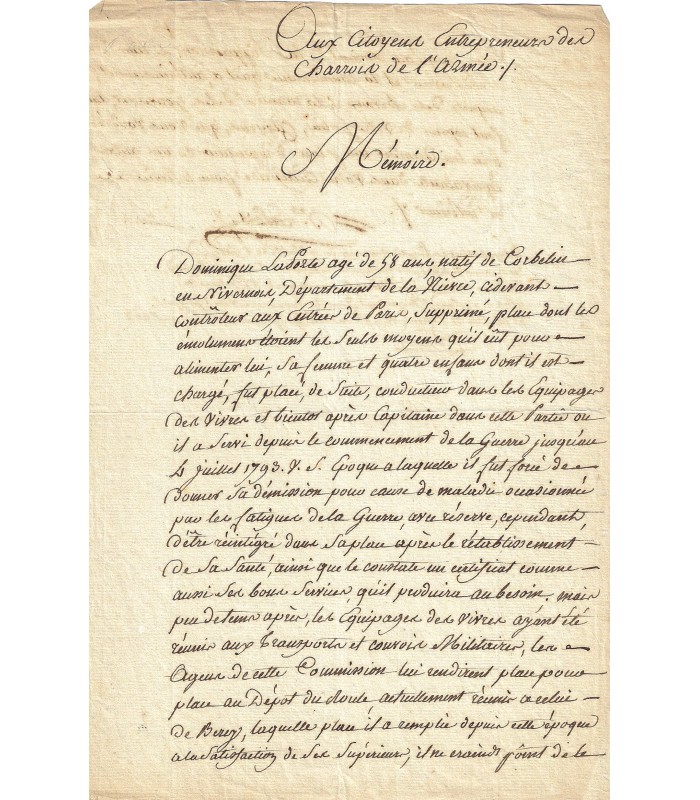 Aux Citoyens Entrepreneurs des
Charrois de l'Armée ./.
Mémoire.
Dominique LaPorte agé de 58 ans, natif de Corbelin
en Nivernois, Département de la Nièvre, cidevant
contrôleur aux Entrées de Paris, Supprimé, place dont les
émolumens étoient les seuls moyens qu'il eût pour
alimenter lui, sa femme et quatre enfans dont il est
chargé, fut placé, de suite, conducteur dans les Equipages
des Vivres et bientot après Capitaine dans cette Partie ou
il a servi depuis le commencement de la Guerre jusqu'au
4 juillet 1793. V. S. Epoque a laquelle il fut forcé de
donner sa démission pour cause de maladie occasionnée
par les fatigues de la Guerre, avec réserve, cependant,
d'être réintégré dans sa place après le rétablissement
de sa santé, ainsi que le constate un certificat comme
aussi ses bons services, qu'il produira au besoin. mais
peu de tems après, les Equipages des vivres ayant été
réunis aux Transports et convois Militaires, les
Agens de cette Commission lui rendirent place pour
place au Dépot du Roule actuellement réuni a celui
de Bercy, laquelle place il a remplie depuis cette époque
a la satisfaction de ses supérieurs, il ne craind point de le